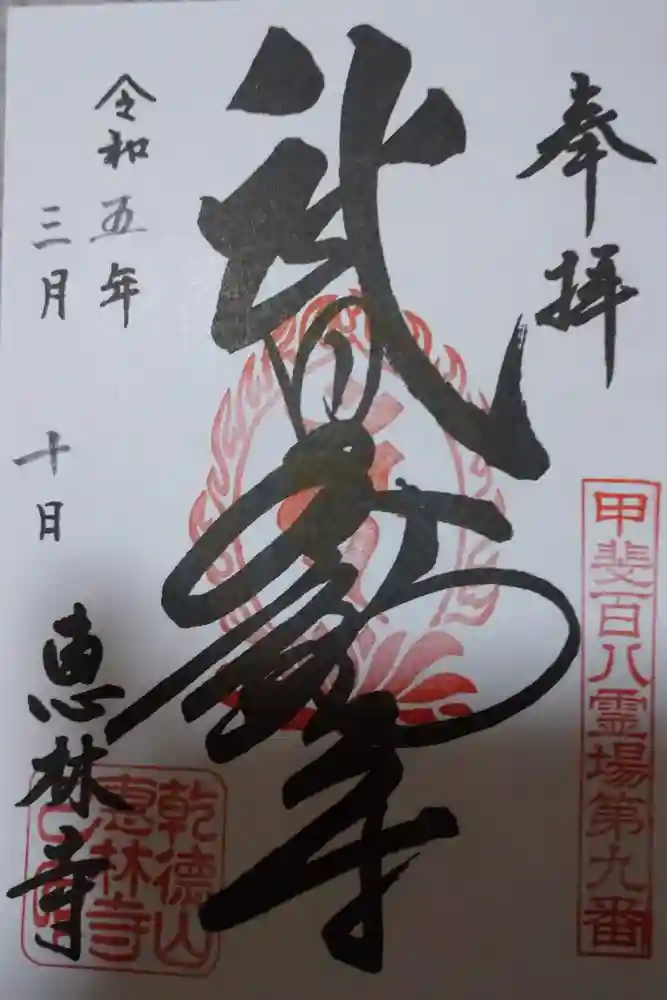 奉拝
甲斐百八霊場第九番
武田不動尊
令和五年
三月 十日
恵林寺
乾徳山
恵林寺